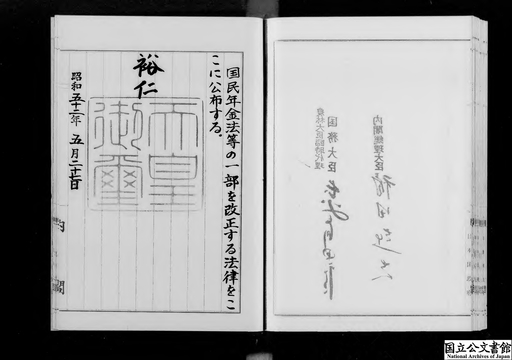 内閣總理大臣 福田赳夫
農林大臣臨時代理
国務大臣
国民年金法等の一部を改正する法律をこ
こに公布する。
裕仁
天皇
御璽
昭和五十二年 五月二十七日
閣
国立公文書館
National Archives of Japan